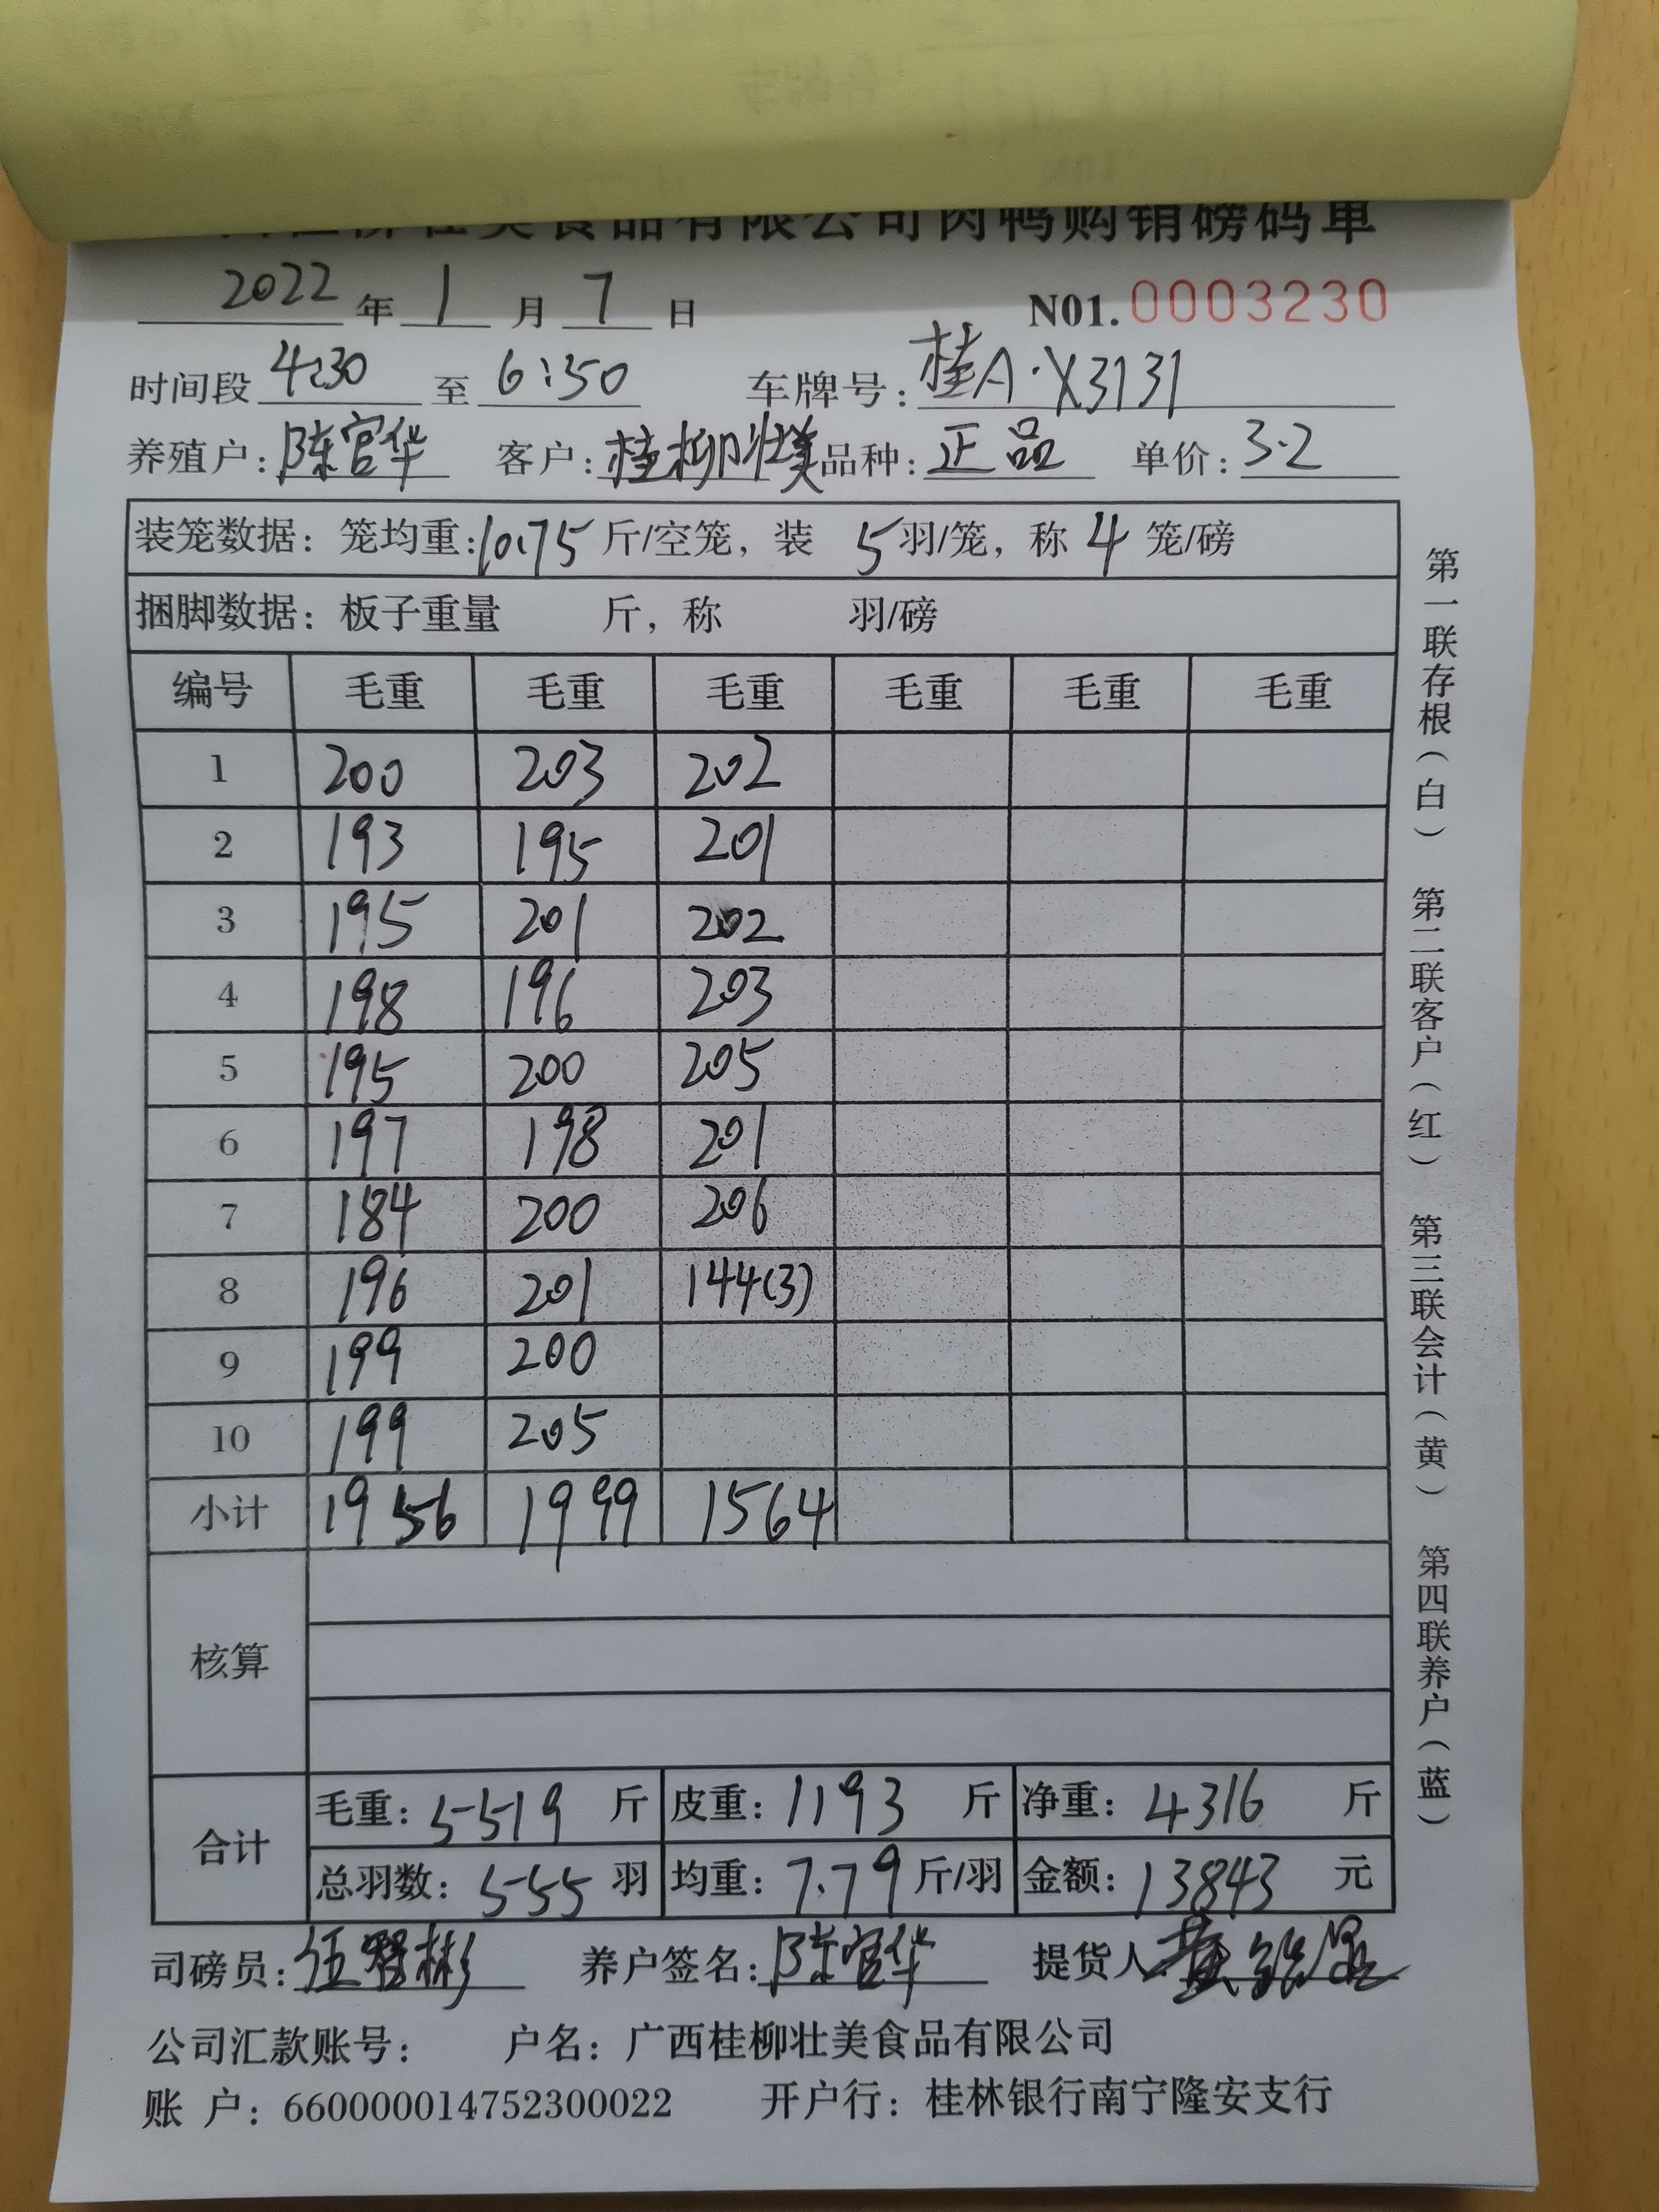 壮美食品有限公司肉鸭购销磅码单
2022年1月7日 N01.0003230
时间段4:30至6:50 车牌号:桂A·X3131
养殖户:陈官华 客户:桂柳壮美 品种:正品 单价:3.2
装笼数据：笼均重:10.75斤/空笼，装5羽/笼，称4笼/磅
捆脚数据：板子重量 斤，称 羽/磅
编号 毛重 毛重 毛重 毛重 毛重 毛重
1 200 203 202
2 193 195 201
3 195 201 202
4 198 196 203
5 195 200 205
6 197 198 201
7 184 200 206
8 196 201 144(3)
9 199 200
10 199 205
小计 1956 1999 1564
核算
合计 毛重：5519斤 皮重：1193斤 净重：4316斤
总羽数：555羽 均重：7.79斤/羽 金额：13843元
司磅员:伍 彬 养户签名:陈官华 提货人:黄
公司汇款账号： 户名：广西桂柳壮美食品有限公司
账 户：660000014752300022 开户行：桂林银行南宁隆安支行
第一联存根（白） 第二联客户（红） 第三联会计（黄） 第四联养户（蓝）